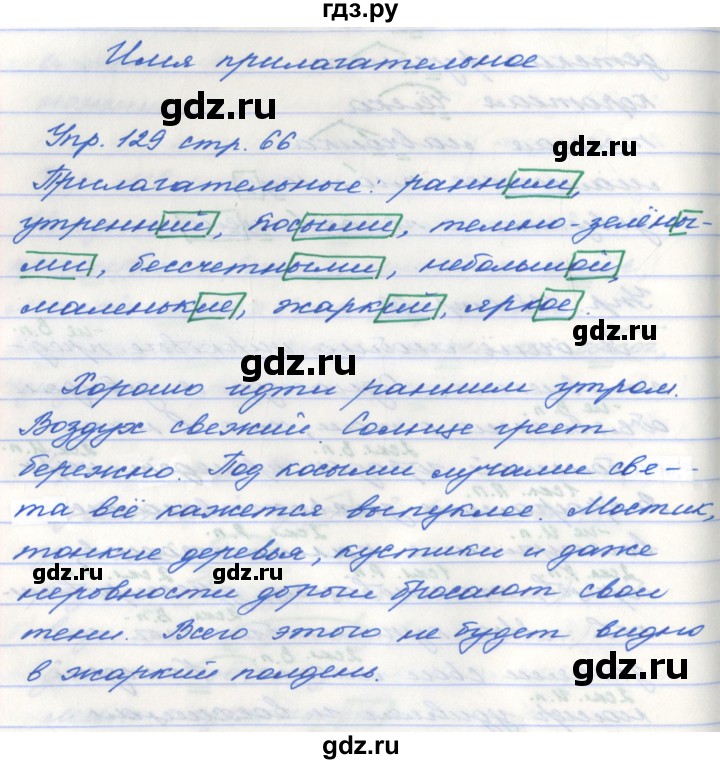 гдз.ру
Имя прилагательное
gdz.ru
Упр. 129 стр. 66
gdz.ru
Прилагательные: ранним,
утренний, косыми, темно-зелёны-
ми, бессчетными, небольшой,
маленькие, жаркий, яркое.
gdz.ru
Хорошо идти ранним утром.
Воздух свежий. Солнце греет
бережно. Под косыми лучами све-
та всё кажется выпуклее. Мостик,
тонкие деревья, кустики и даже
gdz.ru gdz.ru
неровности дороги бросают свои
тени. Всего этого не будет видно
в жаркий полдень.
gdz.ru
gdz.ru